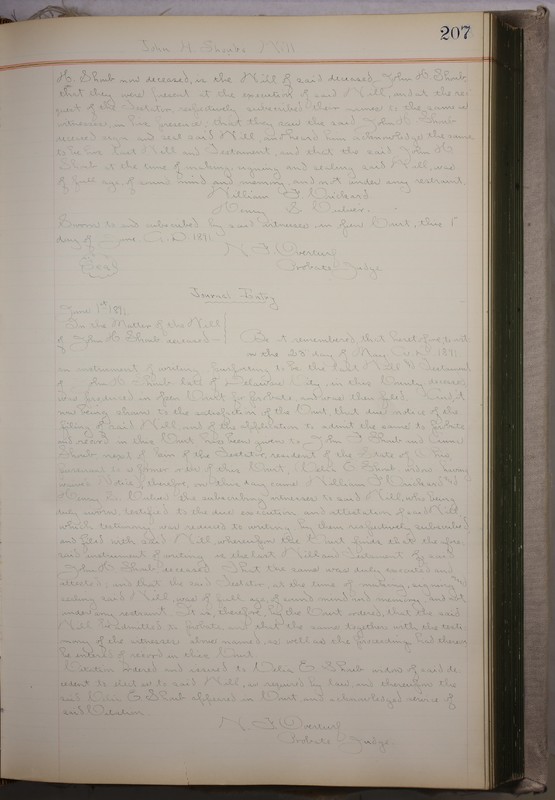 207
John H. Shoub's Will
H. Shoub now deceased, is the Will of said deceased John H. Shoub
that they were present at the execution of said Will, and at the re-
quest of the Testator respectively subscribed their names to the same as
witnesses, in his presence; that they saw the said John H. Shoub
sign and seal said Will, and heard him acknowledge the same
to be his last Will and Testament, and that the said John H.
Shoub at the time of making, signing and sealing said Will, was
of full age, of sound mind and memory, and not under any restraint.
William
Henry
Sworn to and subscribed by said witnesses in open Court, this 1st
day of June A.D. 1891
N. F. Overturf
Seal Probate Judge
Journal Entry
June 1st 1891
In the Matter of the Will
of John H. Shoub deceased
Be it remembered, that heretofore, to wit
on the 28 day of May A.D. 1891
an instrument of writing purporting to be the last Will & Testament
of John H. Shoub late of Delaware City, in this County deceased
was produced in open Court for probate, and was then filed. And it
now being shown to the satisfaction of the Court, that due notice of the
filing of said Will, and of the application to admit the same to probate
and record in this Court has been given to John F Shoub and
Shoub next of kin of the Testator, resident of the State of Ohio
pursuant to a former order of this Court, E Shoub widow having
waived Notice; therefore, on this day came William
Henry the subscribing witnesses to said Will, who being
duly sworn, testified to the due execution and attestation of said Will,
which testimony was reduced to writing by them respectively subscribed
and filed with said Will, whereupon the Court finds that the afore-
said instrument of writing is the last Will and Testament of said
John H. Shoub deceased. That the same was duly executed and
attested; and that the said Testator, at the time of making, signing and
sealing said Will, was of full age, of sound mind and memory and not
under any restraint. It is therefore, by the Court ordered, that the said
Will be admitted to probate, and that the same together with the testi-
mony of the witnesses above named, as well as the proceedings had thereon
be entered of record in this Court.
Citation ordered and issued to E Shoub widow of said de-
cedent to elect as to said Will, as required by law, and thereupon the
said E Shoub appeared in Court and acknowledged service of
said Citation.
N. F. Overturf
Probate Judge.